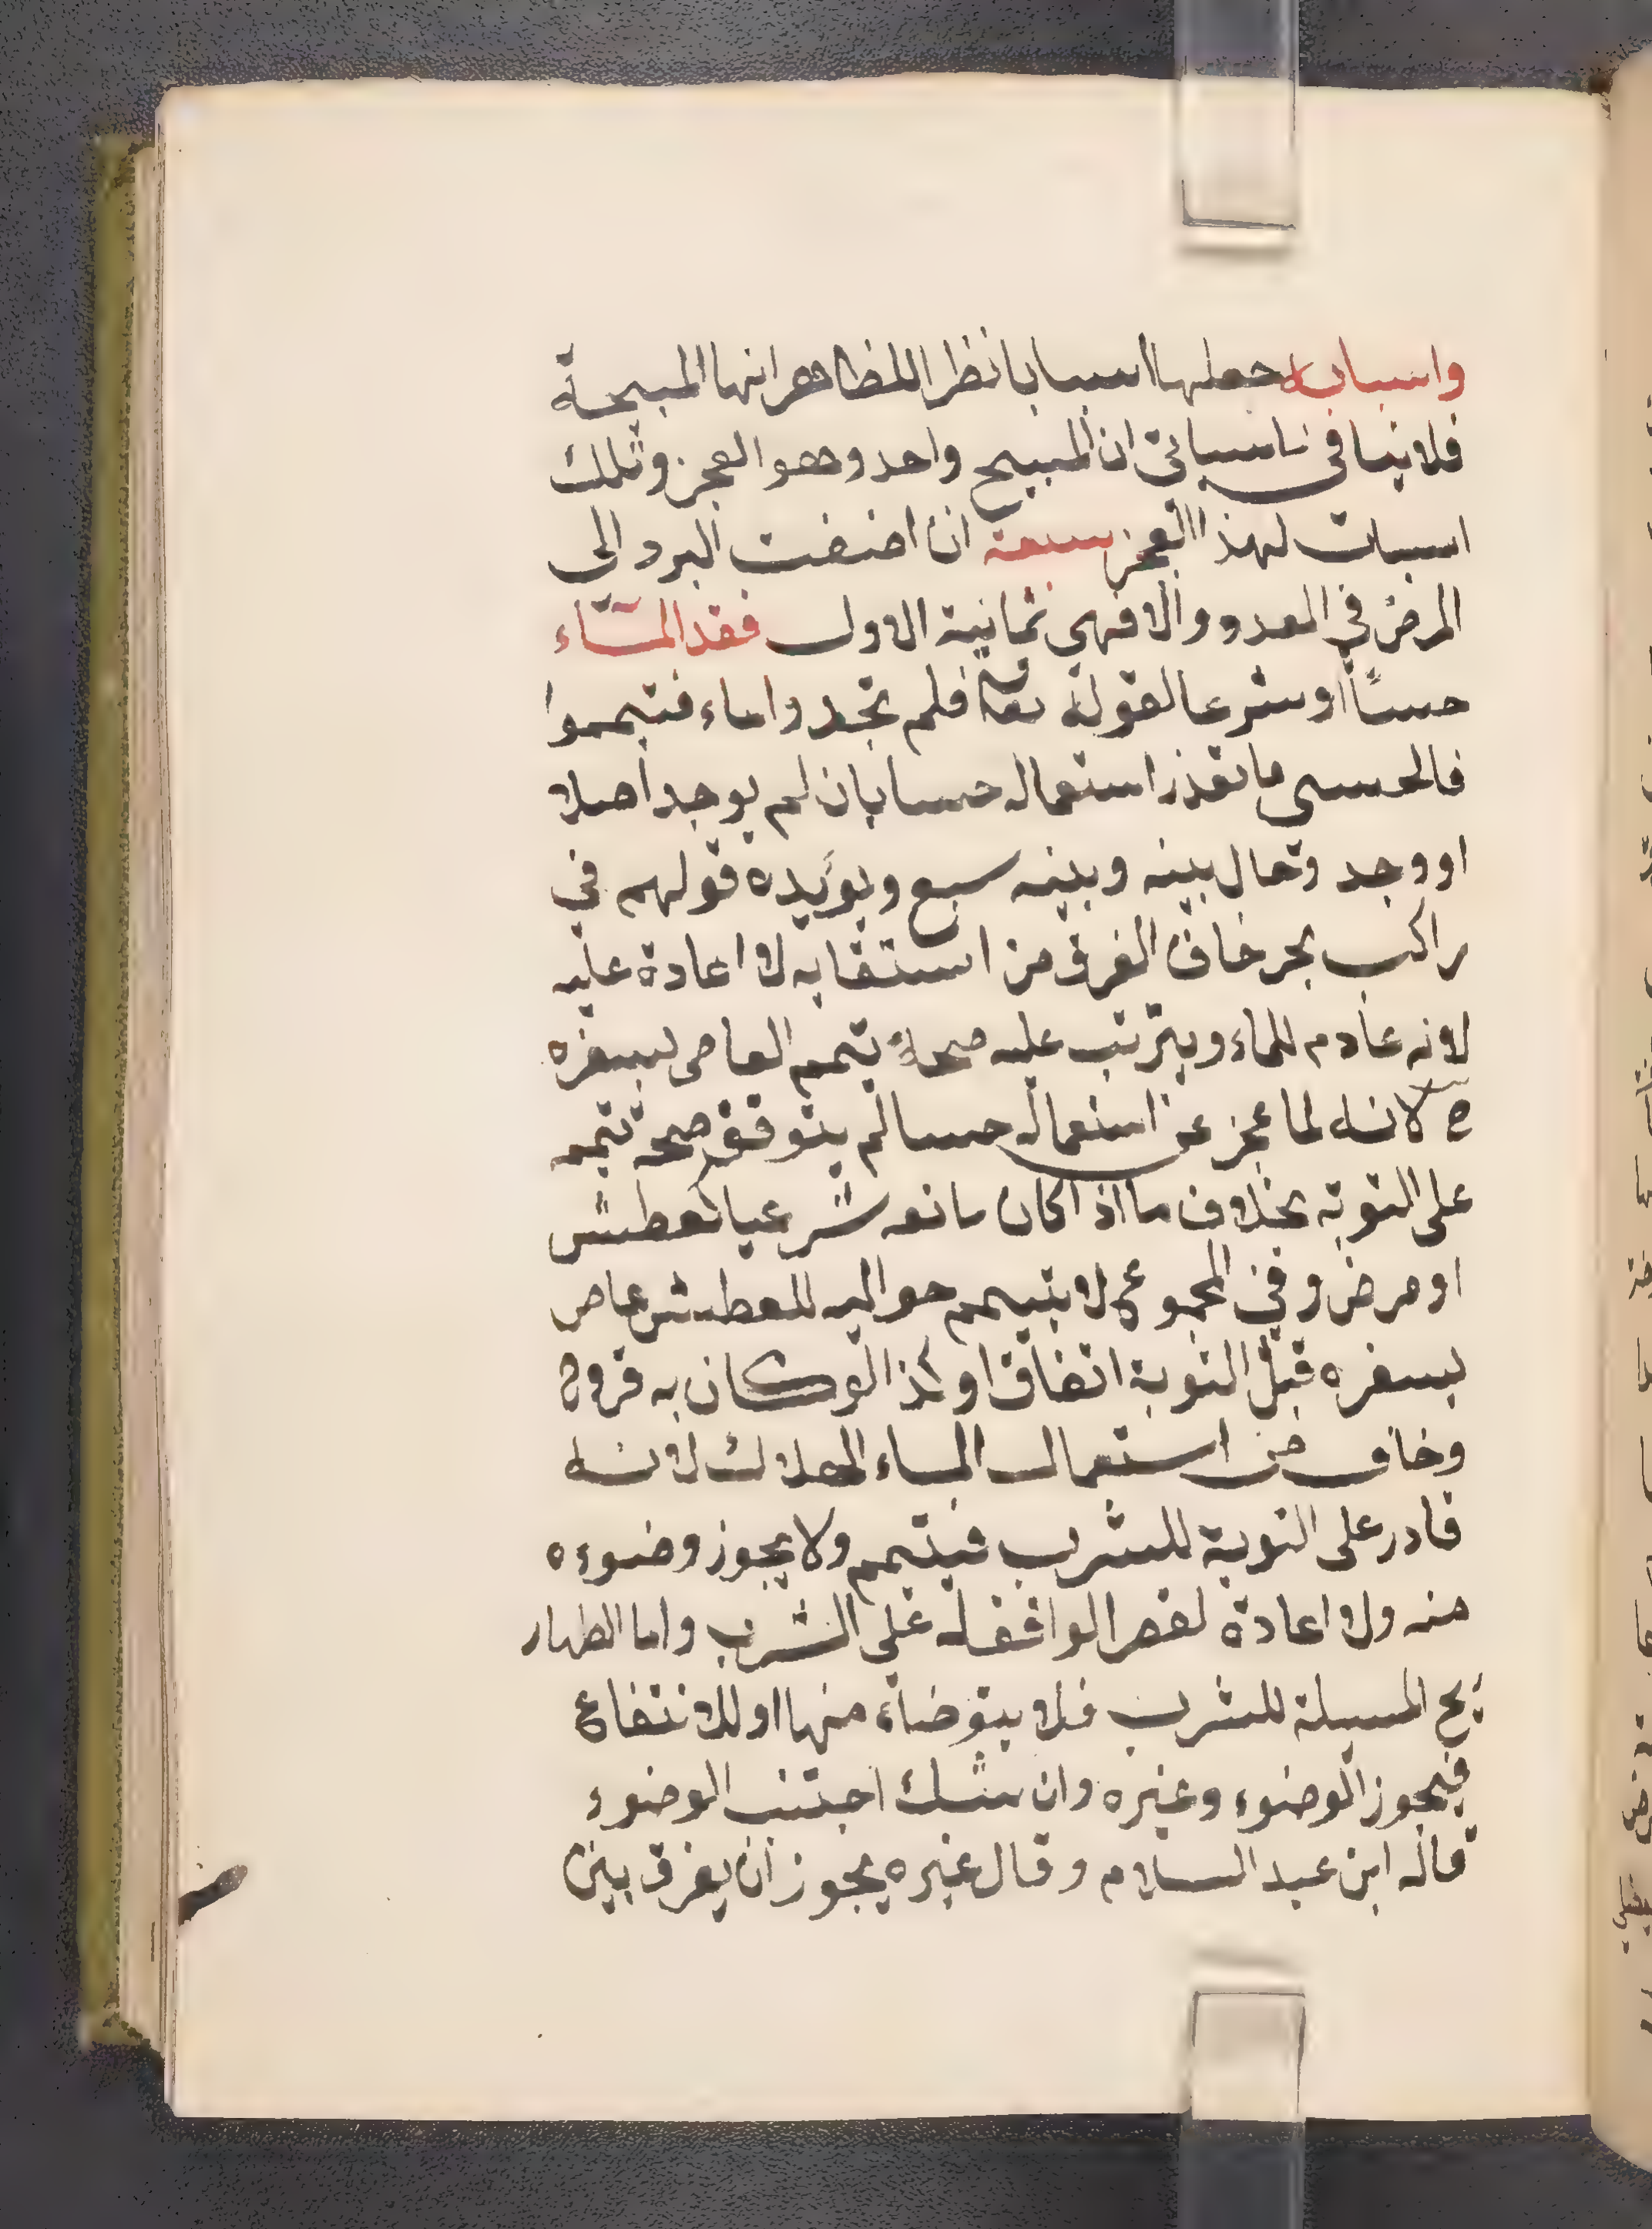 واسبابه جعلها اسبابا نظرا للظاهر انها المبيحة
فلا ينافي ما سياتي ان المبيح واحد وهو العجز وتلك
اسباب لهذا العجز سبعة ان اضفت البرد الى
المرض في العدد والا فهي ثمانية الاول فقد الماء
حسا او شرعا لقوله تعالى فلم تجدوا ماء فتيمموا
فالحسي ما تعذر استعماله حسا بان لم يوجد اصلا
او وجد وحال بينه وبينه سبع ويؤيده قولهم في
راكب بحر خاف الغرق من استقايه لا اعادة عليه
لانه عادم للماء ويترتب عليه صحة تيمم العاصي بسفره
ح لانه لما عجز عن استعماله حسا لم يتوقف صحة تيممه
على التوبة بخلاف ما اذا كان مانعه شرعيا كعطش
او مرض وفي المجموع لا يتيمم حواليه للعطش عاص
بسفره قبل التوبة اتفاقا وكذا لو كان به قروح
وخاف من استعمال الماء الهلاك لانه
قادر على التوبة للشرب فيتيمم ولا يجوز وضوءه
منه ولا اعادة لقصر الواقف له على الشرب واما الطهار
يج المسبلة للشرب فلا يتوضاء منها او للانتفاع
فيجوز الوضوء وغيره وان شك اجتنب الوضوء
قاله ابن عبد السلام وقال غيره يجوز ان يفرق بين